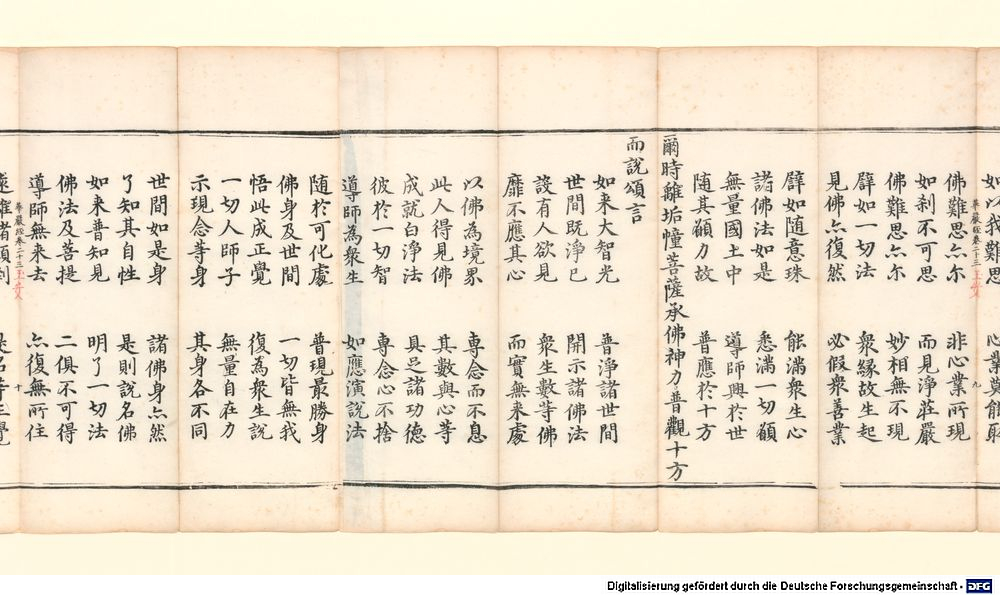 如以我難思 心業莫能取
華嚴經卷二十三 九
佛難思亦尔 非心業所現
如剎不可思 而見淨莊嚴
佛難思亦尔 妙相無不現
譬如一切法 衆緣故生起
見佛亦復然 必假衆善業
譬如随意珠 能滿衆生心
諸佛法如是 悉滿一切願
無量國土中 導師興於世
随其願力故 普應於十方
爾時離垢幢菩薩承佛神力普觀十方
而說頌言
如来大智光 普淨諸世間
世間既淨已 開示諸佛法
設有人欲見 衆生數等佛
靡不應其心 而實無来處
以佛為境界 専念而不息
此人得見佛 其數與心等
成就白淨法 具足諸功德
彼於一切智 専念心不捨
導師為衆生 如應演說法
随於可化處 普現最勝身
佛身及世間 一切皆無我
悟此成正覺 復為衆生說
一切人師子 無量自在力
示現念等身 其身各不同
世間如是身 諸佛身亦然
了知其自性 是則說名佛
如来普知見 明了一切法
佛法及菩提 二俱不可得
導師無来去 亦復無所住
華嚴經卷二十三 十
遠離諸顛倒 是名等正覺
Digitalisierung gefördert durch die Deutsche Forschungsgemeinschaft - DFG